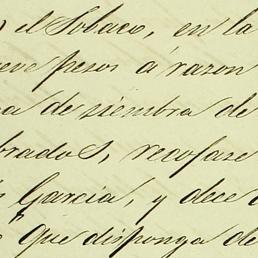 el Sobaco, en la
pesos á razon
de siembra de
brados, recofase
Garcia, y dece
que disponga de